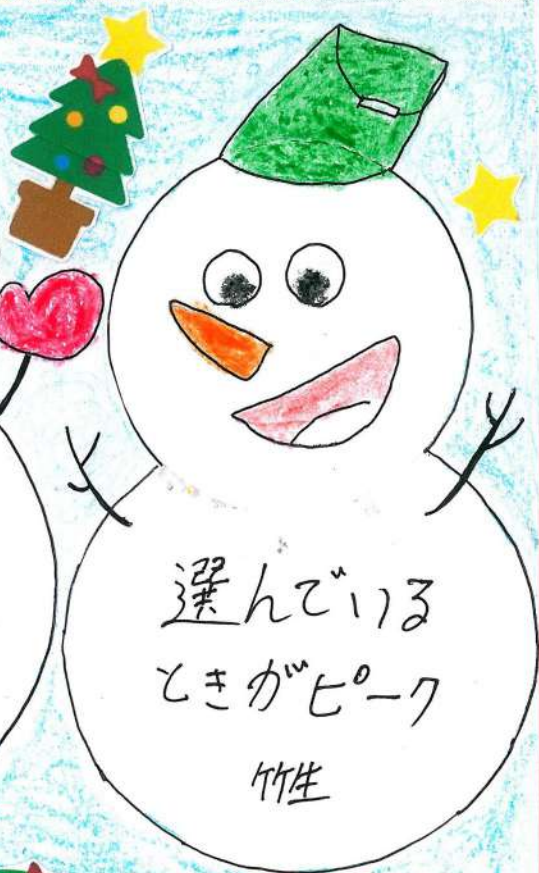 選んでいる
ときがピーク
竹生